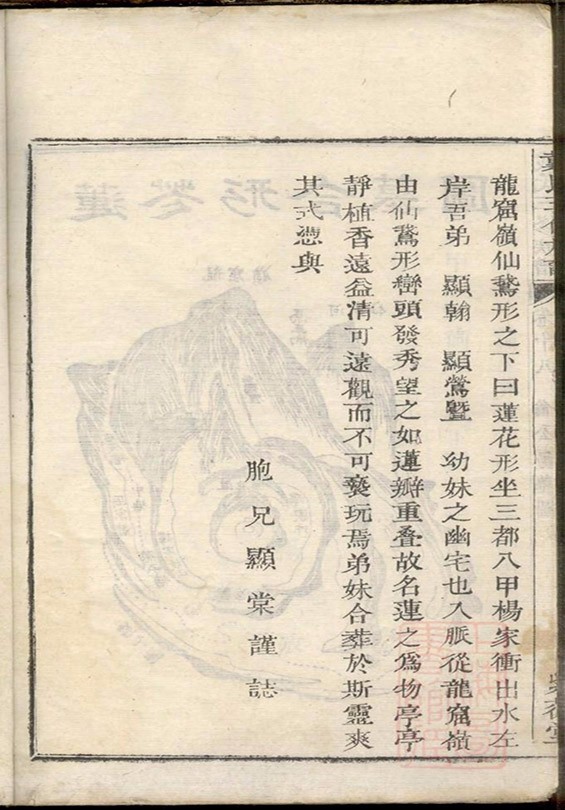 龍窟嶺仙鵞形之下曰蓮花形坐三都八甲楊家衝出水左
岸吾弟 顯翰 顯鶯暨 幼妹之幽宅也入脈從龍窟嶺
由仙鵞形巒頭發秀望之如蓮瓣重叠故名蓮之爲物亭亭
靜植香遠益清可遠觀而不可褻玩焉弟妹合葬於斯靈爽
其式憑與
胞兄顯棠謹誌